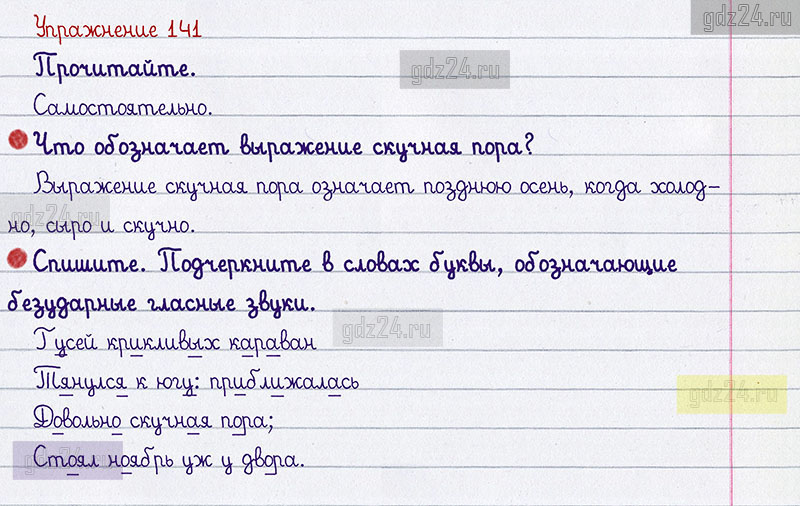 gdz24.ru
Упражнение 141
Прочитайте.
gdz24.ru
Самостоятельно.
Что обозначает выражение скучная пора?
Выражение скучная пора означает позднюю осень, когда холод-
gdz24.ru
но, сыро и скучно.
Спишите. Подчеркните в словах буквы, обозначающие
безударные гласные звуки.
gdz24.ru
Гусей крикливых караван
Тянулся к югу: приближалась
gdz24.ru
Довольно скучная пора;
gdz24.ru
Стоял ноябрь уж у двора.